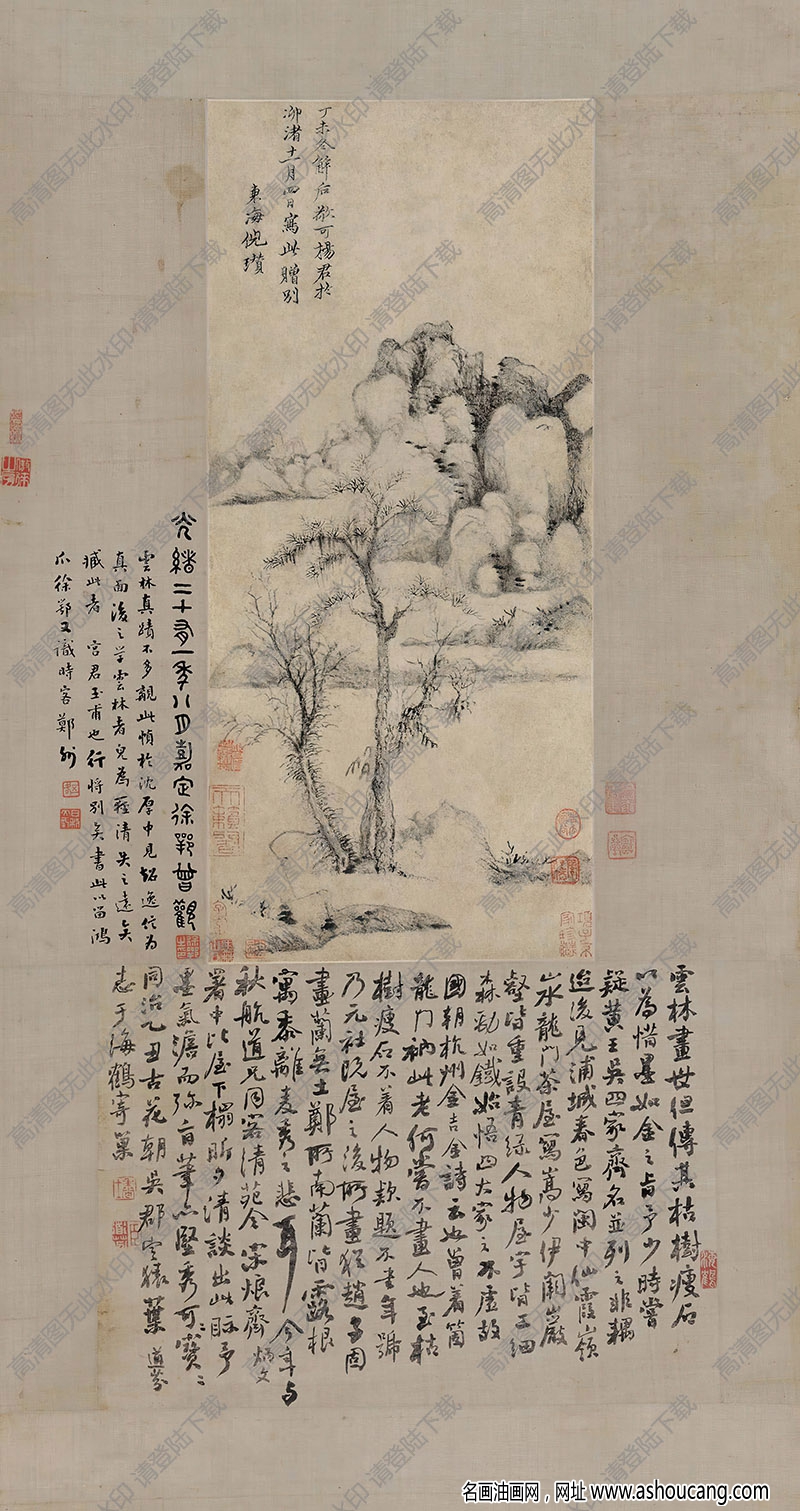 丁未冬解后敬可楊君於
柳渚十一月四日寫此贈別
東海倪瓚
光緒二十又一季八月嘉定徐鄂曾觀
雲林真蹟不多覯此幀於沈厚中見超逸信为
真而後之学雲林者
臧此者 宫君玉甫也行將別矣書此以留鴻
爪徐鄂又識時客鄭州
雲林畫世但傳其枯樹瘦石
以為惜墨如金之旨予少時嘗
疑黃王吳四家齊名並列之非耦
迨後見浦城春色寫閩中仙霞嶺
龍門茶屋寫嵩少伊闕巖
壑皆重設青绿人物屋宇皆工细
森動如鐵始悟四大家之不虛故
國朝杭州金吉金詩云也曾着箇
龍门衲此老何嘗不畫人也至枯
樹瘦石不着人物款題不書年號
乃元社既屋之後所畫猶趙子固
畫蘭無土鄭所南蘭皆露根
寓黍離麦秀之悲耳今年与
秋航道兄同客清苑令宗烺齋炳文
署中比屋下榻昕夕清談出此眎予
墨氣澹而弥旨筆亦堅秀可寶
同治乙丑古花朝吳郡葉道芬
志于海鶴寄巢
高清图无此水印 请登陆下载
名画油画网，网址 www.ashoucang.com